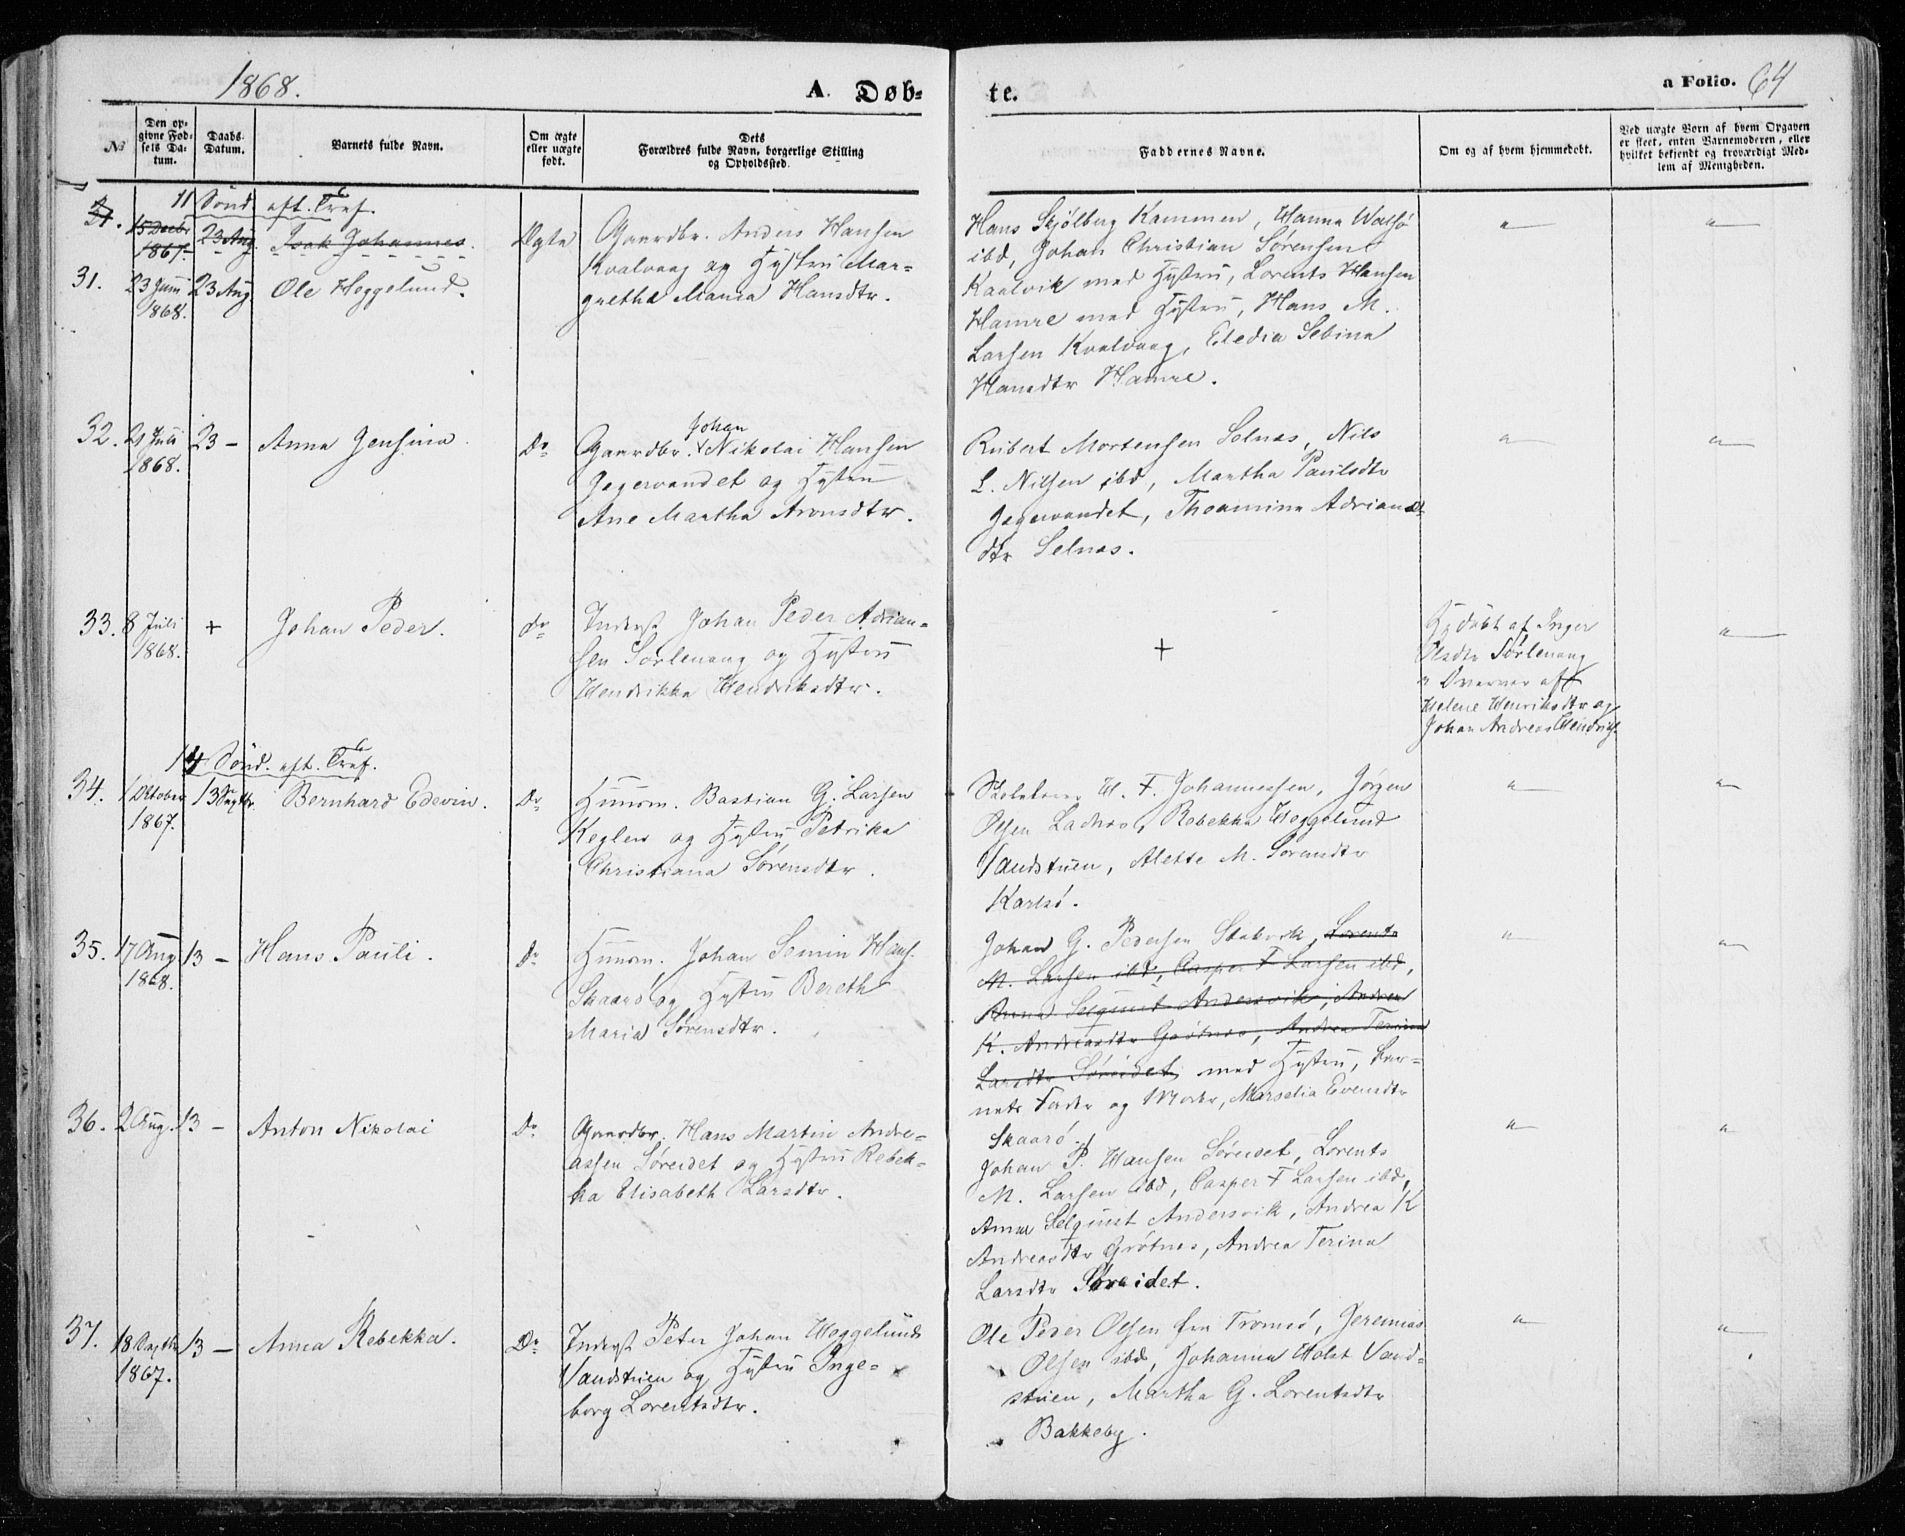 1868.
A. Døb-
te.
a Folio. 64
№
Den op-
givne Fød-
sels Da-
tum.
Daabs-
Datum.
Barnets fulde Navn.
Om ægte
eller uægte
født.
Dets
Forældres fulde Navn, borgerlige Stilling
og Opholdssted.
Faddernes Navne.
Om og af hvem hjemmedøbt.
Ved uægte Børn af hvem Opgaven
er skeet, enten Barnemoderen, eller
hvilket bekjendt og troværdigt Med-
lem af Menigheden.
11 Sönd. eft. Tref.
31. 15 Decbr
1867. 23 Aug Isak Johannes.
31. 23 Juni
1868. 23 Aug Ole Heggelund.
Ægte
Gaardbr. Anders Hansen
Kvalvaag og Hustru Mar-
gretha Maria Hansdtr.
Hans Skjölberg Kammen, Hanna Walsö
ibd, Johan Christian Sörensen
Kaalvik med Hustru, Lorents Hansen
Hamre med Hustru, Hans M.
Larsen Kvalvaag, Eledia Sebina
Hansdtr Hamre.
32. 21 Juli
1868. 23 – Anna Jensina.
Do
Johan
Gaardbr. + Nikolai Hansen
Jegervandet og Hustru
Ane Martha Aronsdtr.
Rubert Mortensen Selnæs, Nils
L. Nilsen ibd, Martha Paulsdtr
Jegervandet, Thoamina Adrians
dtr Selnæs.
33. 8 Juli
1868. + Johan Peder.
do
Inderst Johan Peder Adrian-
sen Sörlenang og Hustru
Hendrikka Hendriksdtr.
+
Hjdöbt af Inger
Olsdtr Sörlenang
i Overvær af
Helene Henriksdtr og
Johan Andreas Hendriks.
14 Sönd. eft. Tref.
34. 1 Oktober
1867. 13 Septbr. Bernhard Edevin.
Do
Huusm. Bastian G. Larsen
Keglen og Hustru Petrika
Christiana Sörensdtr.
Skolelærer H. F. Johannessen, Jörgen
Olsen Ladnæs, Rebekka Heggelund
Vandstuen, Alette M. Sörensdtr
Karlsö.
35. 17 Aug
1868. 13 – Hans Pauli.
Do
Huusm. Johan Semin Hans.
Skaarö og Hustru Bereth
Maria Sörensdtr.
Johan G. Pedersen Stakvik, Lorents
M. Larsen ibd, Casper F Larsen ibd,
Anna Selquist Andersvik, Andrea
K. Andreasdtr Grötnæs, Andrea Terina
Larsdtr Söreidet med Hustru, Bar-
nets Fader og Moder, Marselia Evensdtr
Skaarö.
36. 2 Aug. 13 – Anton Nikolai
Do
Gaardbr. Hans Martin Andre-
assen Söreidet og Hustru Rebek-
ka Elisabeth Larsdtr.
Johan P. Hansen Söreidet, Lorents
M. Larsen ibd, Casper F Larsen ibd,
Anna Selquist Andersvik, Andrea K
Andreasdtr Grötnæs, Andrea Terina
Larsdtr Söreidet.
37. 18 Septbr
1867. 13 – Anna Rebekka.
Do
Inderst Peter Johan Heggelund
Vandstuen og Hustru Inge-
borg Lorentsdtr.
Ole Peder Olsen fra Tromsö, Jeremias
Olsen ibd, Johanna Holst Vand-
stuen, Martha G. Lorentsdtr
Bakkeby.